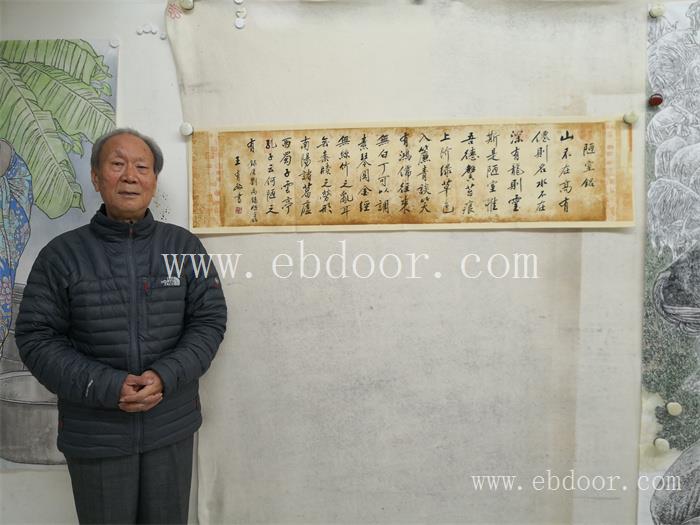 陋室銘
山不在高有
僊則名水不在
深有龍則靈
斯是陋室惟
吾德馨苔痕
上階綠草色
入簾青談笑
有鴻儒往來
無白丁可以調
素琴閱金經
無絲竹之亂耳
無案牘之勞形
南陽諸葛廬
西蜀子雲亭
孔子云何陋之
有
王 書
THE NORTH FACE
www.ebdoor.com
www.ebdoor.com